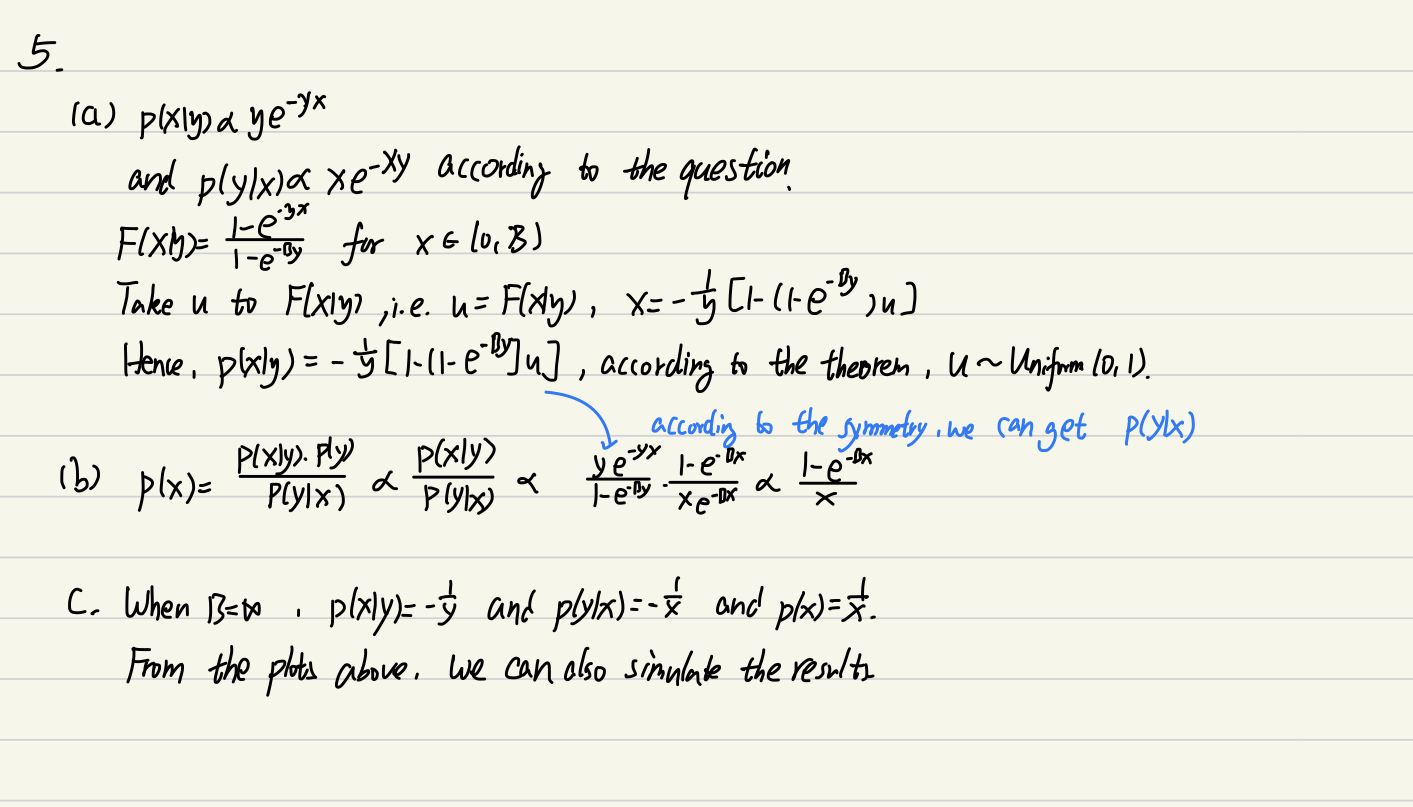 5.
(a) p(x|y) ∝ ye^{-yx}
and p(y|x) ∝ xe^{-xy} according to the question.
F(x|y) = \frac{1-e^{-yx}}{1-e^{-By}} for x ∈ (0, B)
Take u to F(x|y), i.e. u = F(x|y), x = -\frac{1}{y} [1-(1-e^{-By})u]
Hence, p(x|y) = -\frac{1}{y} [1-(1-e^{-By}]u], according to the theorem, U ~ Uniform (0, 1).
according to the symmetry, we can get p(y|x)
(b) p(x) = \frac{p(x|y)·p(y)}{p(y|x)} ∝ \frac{p(x|y)}{p(y|x)} ∝ \frac{ye^{-yx}}{1-e^{-By}} · \frac{1-e^{-Bx}}{xe^{-Bx}} ∝ \frac{1-e^{-Bx}}{x}
C. When B=∞, p(x|y) = -\frac{1}{y} and p(y|x) = -\frac{1}{x} and p(x) = \frac{1}{x}.
From the plots above, we can also simulate the results